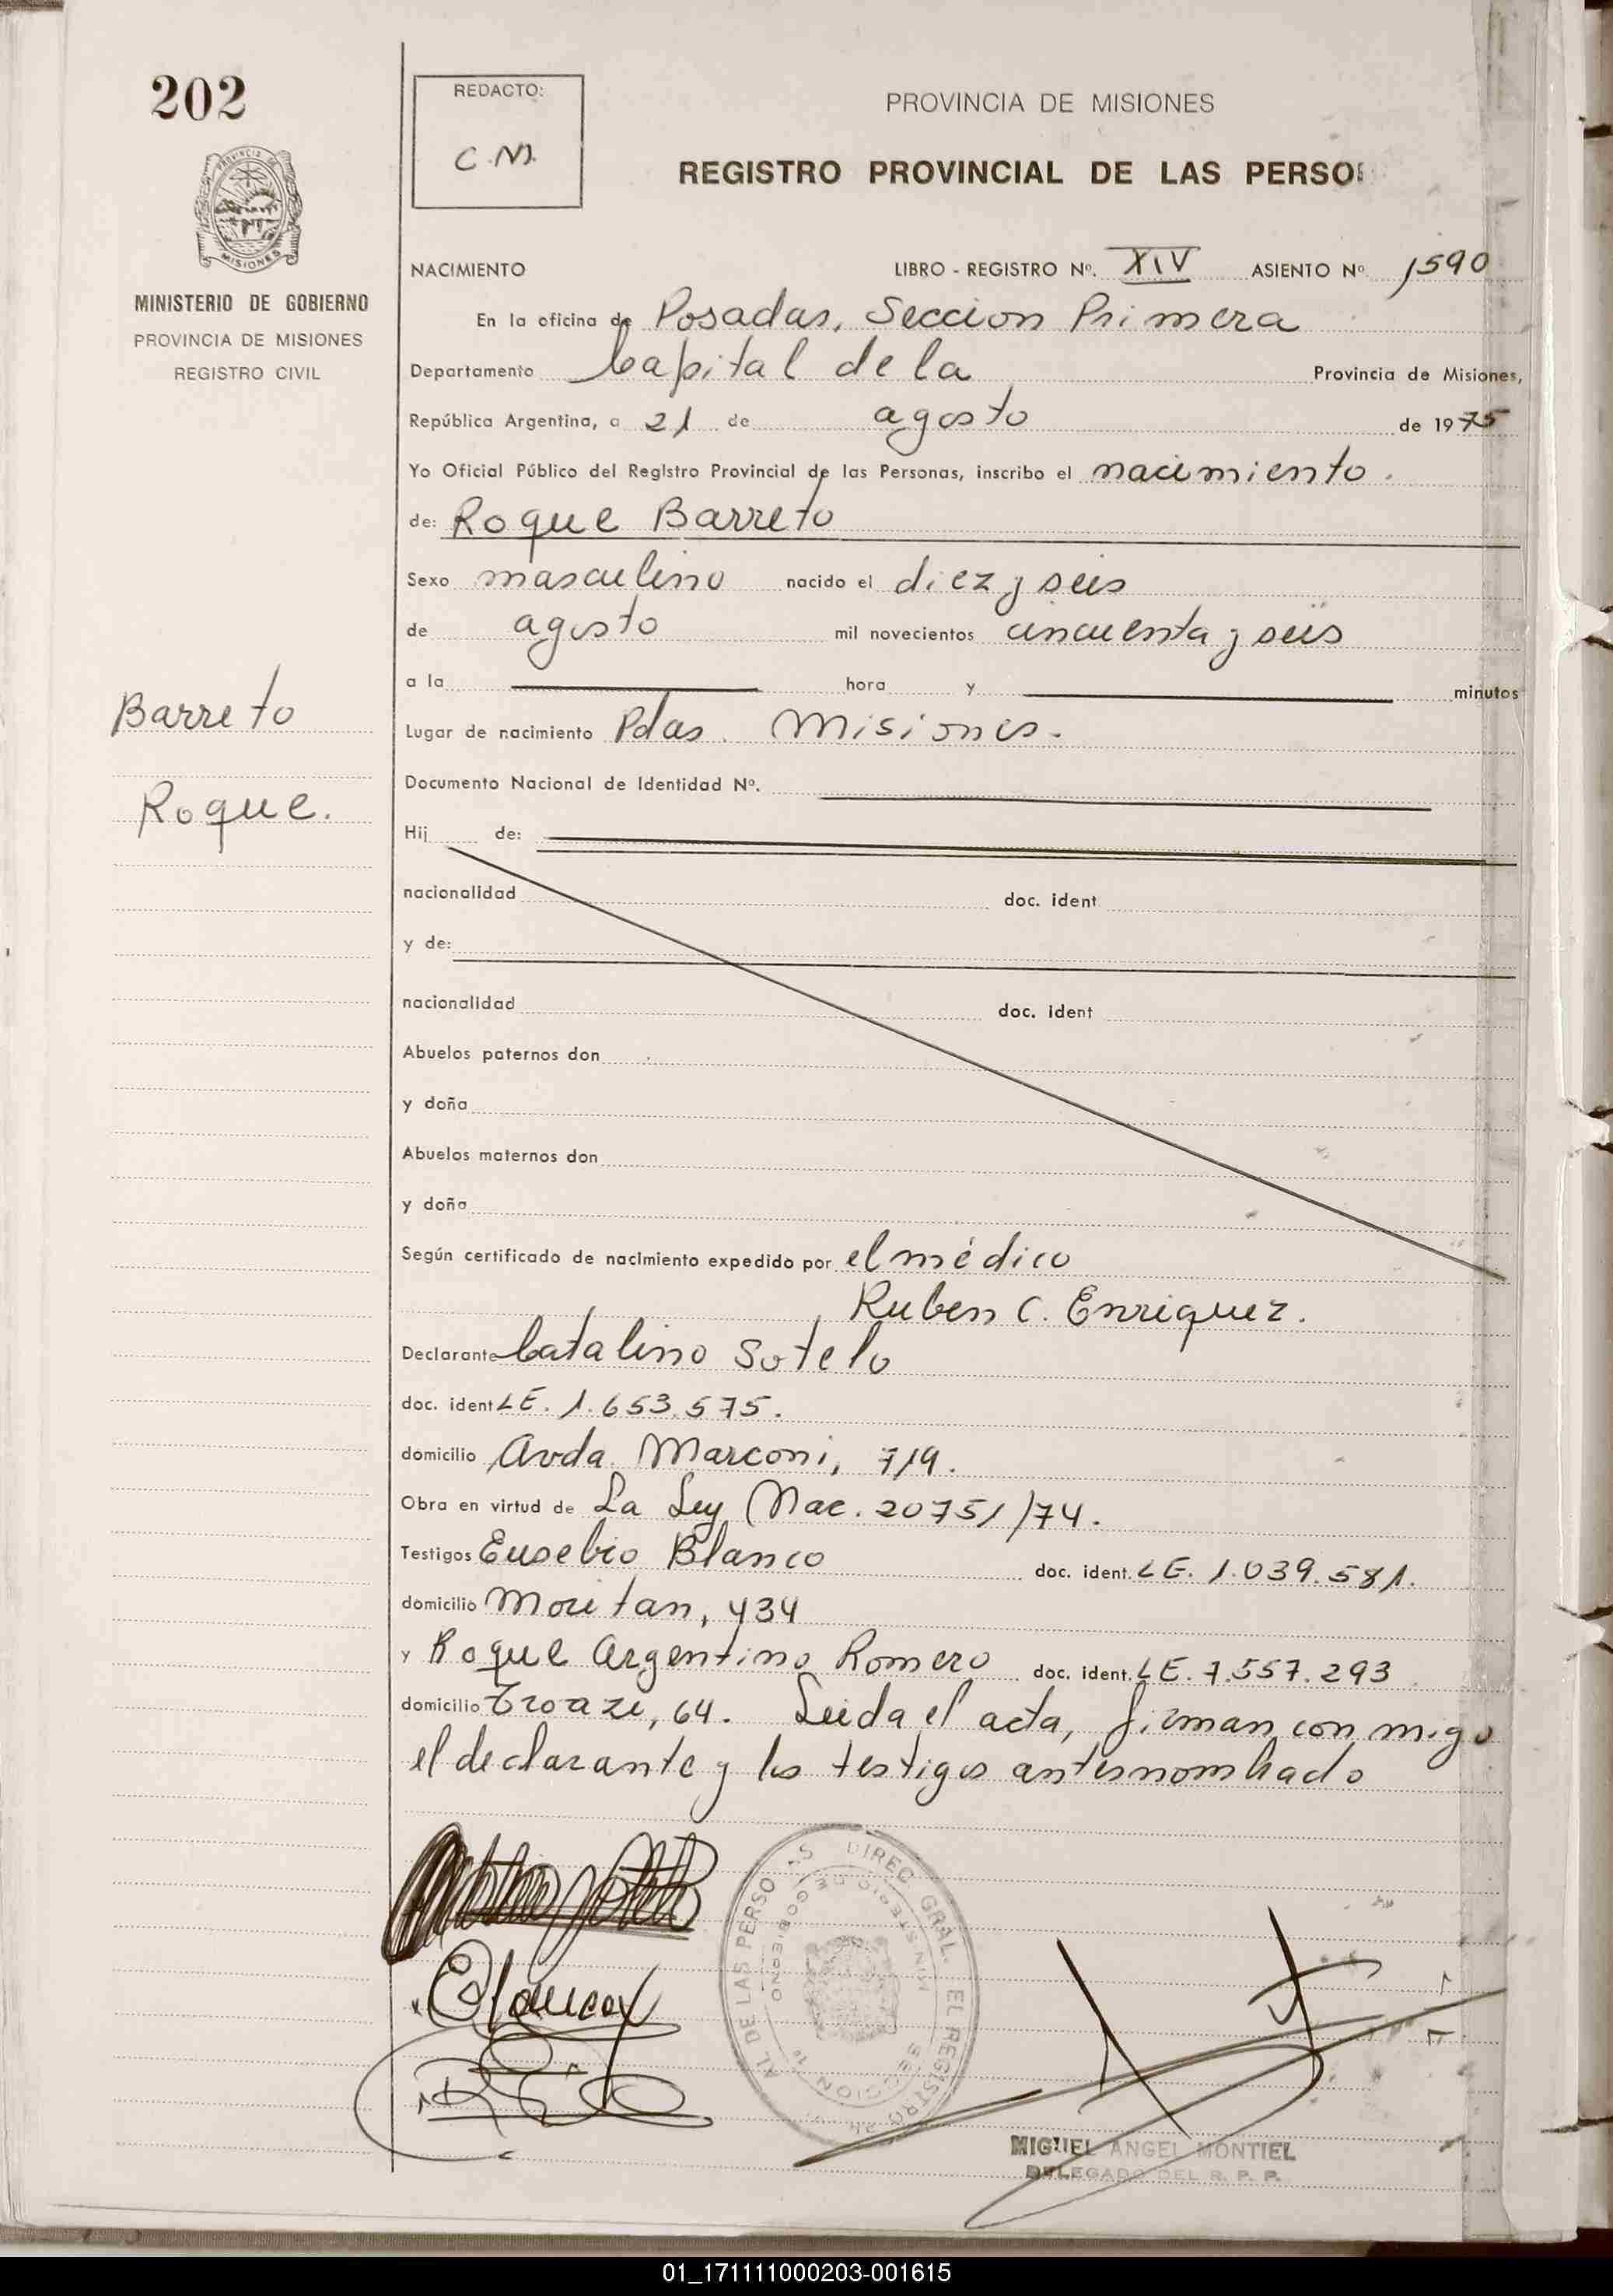 202
REDACTO:
C.N.
PROVINCIA DE MISIONES
REGISTRO PROVINCIAL DE LAS PERSO
PROVINCIA DE
MISIONES
MINISTERIO DE GOBIERNO
PROVINCIA DE MISIONES
REGISTRO CIVIL
NACIMIENTO LIBRO - REGISTRO Nº. XIV ASIENTO Nº 1590
En la oficina de Posadas, Seccion Primera
Departamento Capital de la Provincia de Misiones,
República Argentina, a 21 de agosto de 1975
Yo Oficial Público del Registro Provincial de las Personas, inscribo el nacimiento.
de: Roque Barreto
Sexo masculino nacido el diez y seis
de agosto mil novecientos cincuenta y seis
a la hora y minutos
Barreto
Lugar de nacimiento Pdas. Misiones.
Documento Nacional de Identidad Nº.
Roque.
Hij de:
nacionalidad doc. ident
y de:
nacionalidad doc. ident
Abuelos paternos don
y doña
Abuelos maternos don
y doña
Según certificado de nacimiento expedido por el médico
Ruben C. Enriquez.
Declarante Catalino Sotelo
doc. ident LE. 1.653.575.
domicilio Avda. Marconi, 719.
Obra en virtud de La Ley Nac. 20751/74.
Testigos Eusebio Blanco doc. ident. LE. 1.039.581.
domicilio Moritan, 434
y Roque Argentino Romero doc. ident. LE. 7.557.293
domicilio Troazi, 64. Leida el acta, firman con migo
el declarante y los testigos antesnombrado
AL DE LAS PERSO AS DIREC GRAL. EL REGISTRO
MINISTERIO DE GOBIERNO
SECCION 1ª
MIGUEL ANGEL MONTIEL
DELEGADO DEL R. P. P.
01_171111000203-001615